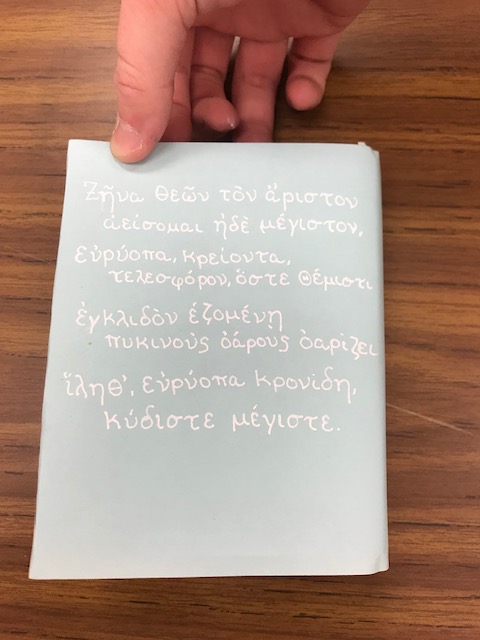 Ζῆνα θεῶν τὸν ἄριστον
ἀείσομαι ἠδὲ μέγιστον,
εὐρύοπα, κρείοντα,
τελεσφόρον, ὅστε Θέμιστι
ἐγκλιδὸν ἑζομένῃ
πυκινοὺς ὀάρους ὀαρίζει
ἵληθ', εὐρύοπα Κρονίδη,
κύδιστε μέγιστε.